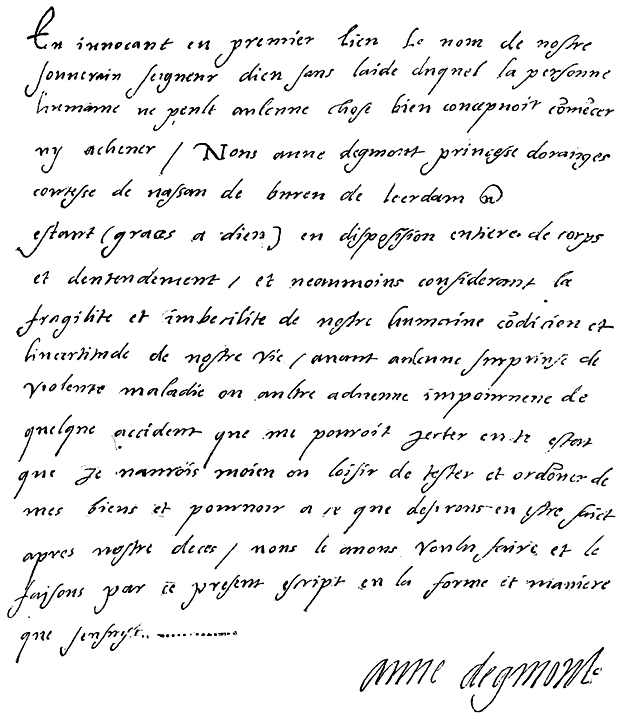 En innocant en premier lieu Le nom de nostre
souuerain seigneur dieu sans laide duquel la personne
humaine ne peult aulcune chose bien concepuoir cōmēcer
ny acheuer / Nous anne degmont princesse doranges
contesse de nassau de buren de leerdam &
estant (graces a dieu) en disposision entiere de corps
et dentendement / et neaumoins considerant la
fragilite et imbecilite de nostre humaine cōdicion et
lincertitude de nostre vie / auant aulcune surprinse de
violente maladie ou aultre aduenue impourueue de
quelque accident que me pouroit Jecter en te estat
que Je naurois moien ou loisir de tester et ordōner de
mes biens et pouruoir a ce que desirons en estre faict
apres nostre deces / nous le auons voulu faire et le
faisons par ce present escript en la forme et maniere
que sensuyt..
anne degmont